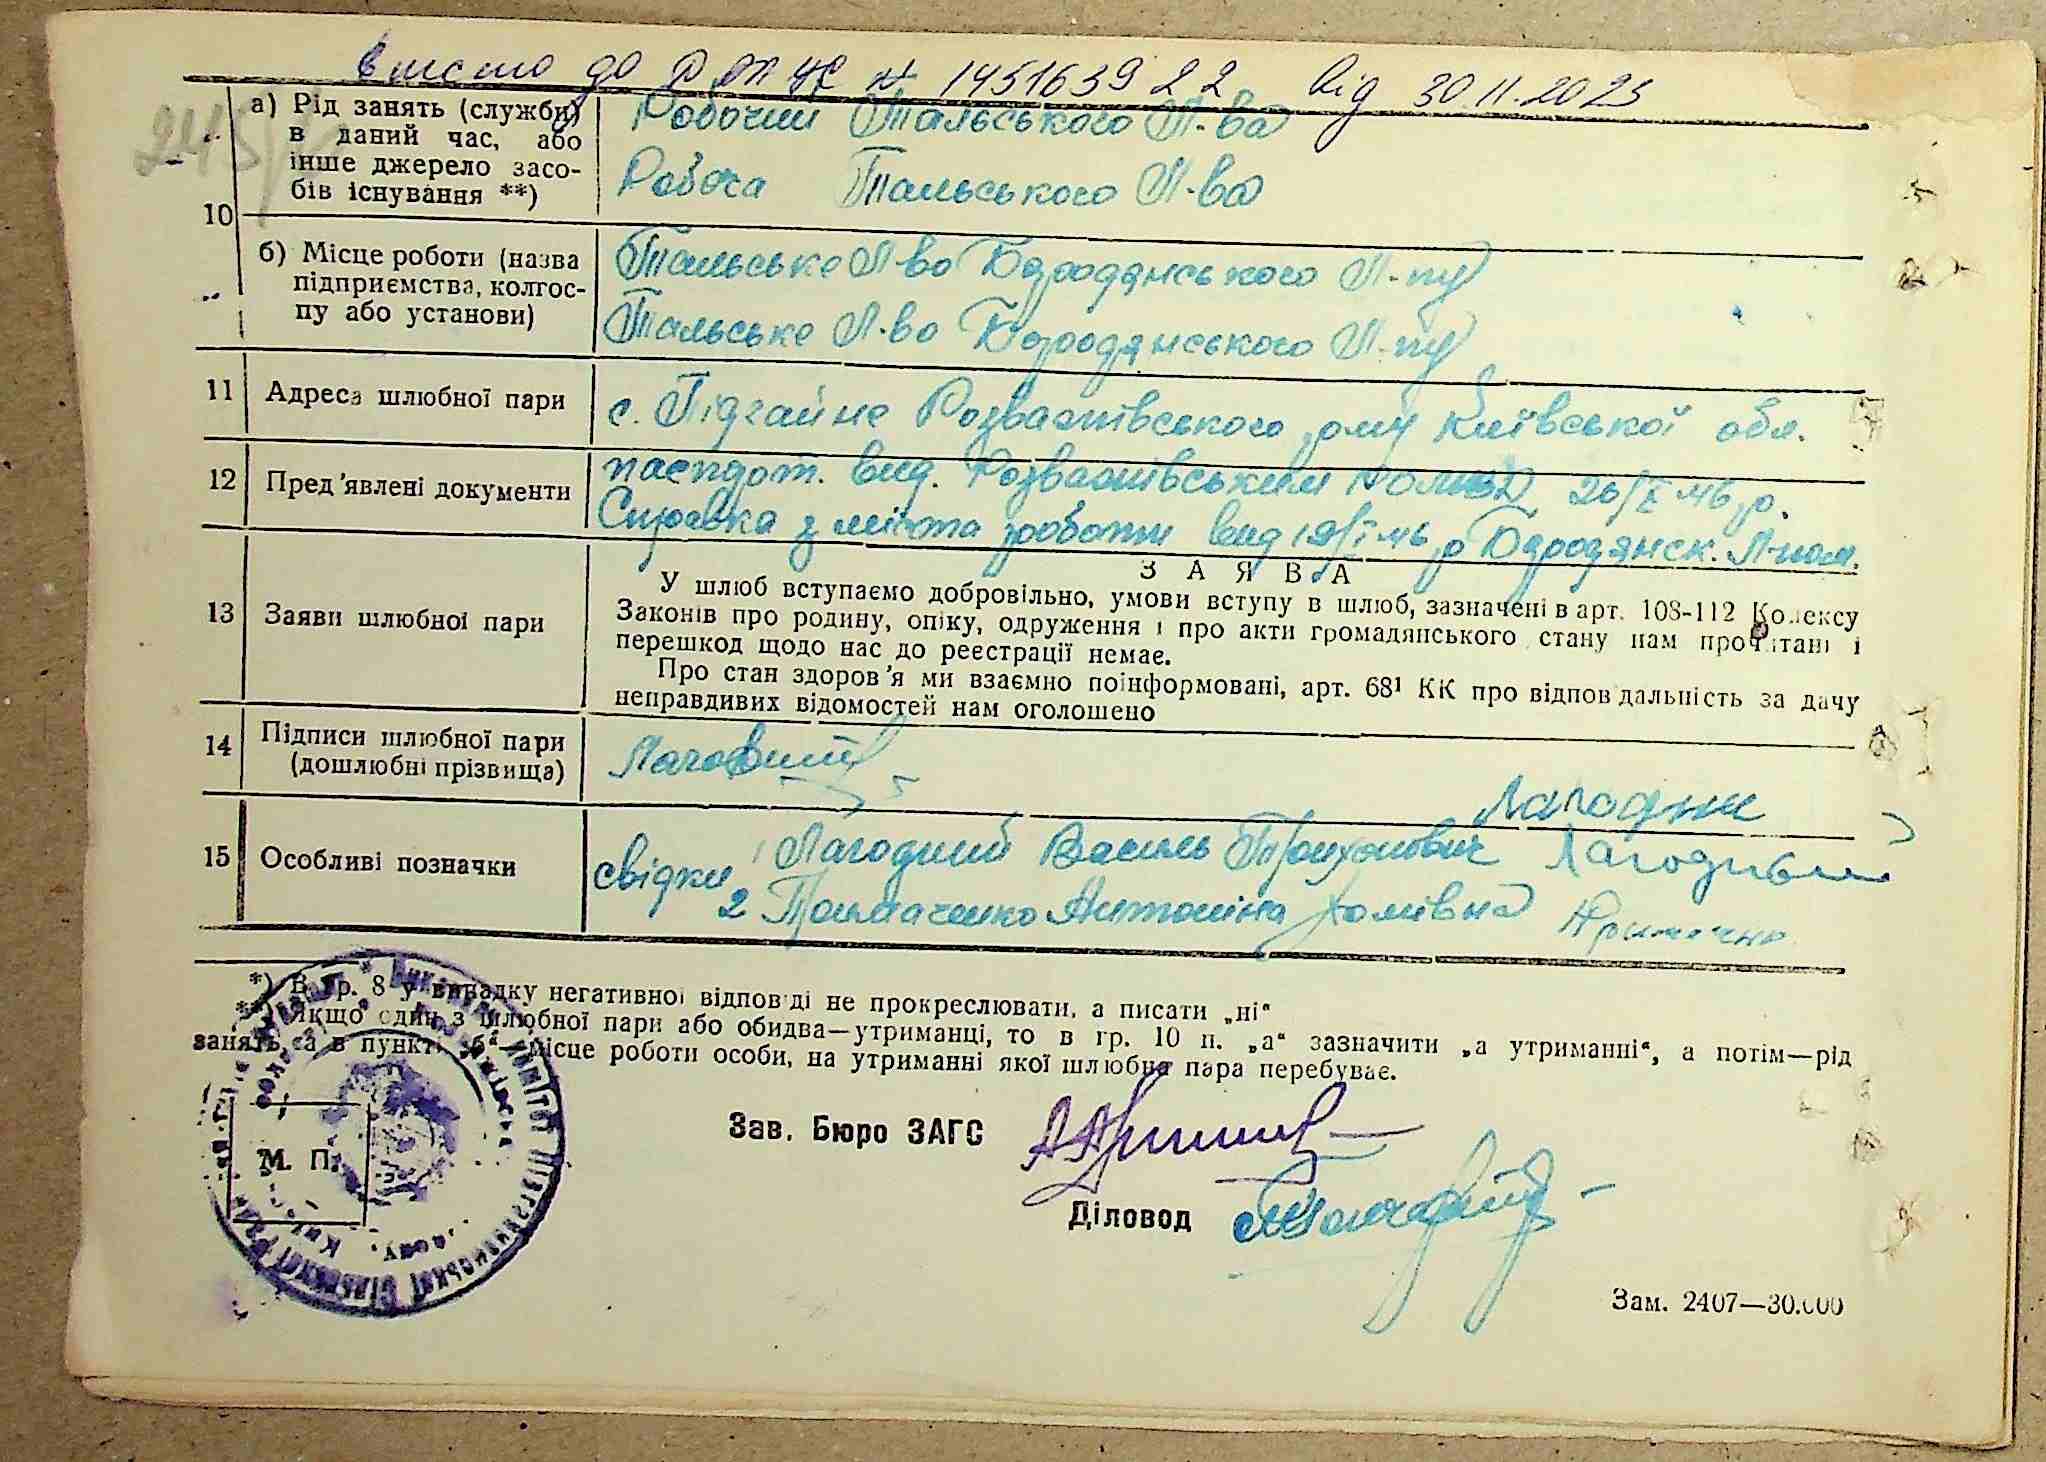 внесено до ДРАЦС № 145163922 від 30.11.2023
245
10
а) Рід занять (служби)
в даний час, або
інше джерело засо-
бів існування **)
Робочий Тальського Л-ва
Робоча Тальського Л-ва
б) Місце роботи (назва
підприємства, колгос-
пу або установи)
Тальське Л-во Бородянського Л-пу
Тальське Л-во Бородянського Л-пу
11
Адреса шлюбної пари
с. Підгайне Розважівського р-ну Київської обл.
12
Пред'явлені документи
паспорт. вид. Розважівським РОМВД 26/IX 46 р.
Справка з міста роботи вид 19/I-46 р Бородянск. Л-пом.
13
Заяви шлюбної пари
ЗАЯВА
У шлюб вступаємо добровільно, умови вступу в шлюб, зазначені в арт. 108-112 Кодексу
Законів про родину, опіку, одруження і про акти громадянського стану нам прочитані і
перешкод щодо нас до реєстрації немає.
Про стан здоров'я ми взаємно поінформовані, арт. 68¹ КК про відповідальність за дачу
неправдивих відомостей нам оголошено
14
Підписи шлюбної пари
(дошлюбні прізвища)
15
Особливі позначки
свідки 1 Лагодний Василь Трихонович
2 Примаченко Антоніна Хомівна
*) В гр. 8 у випадку негативної відповіді не прокреслювати, а писати „ні"
**) Якщо один з шлюбної пари або обидва—утриманці, то в гр. 10 п. „а" зазначити „а утриманні", а потім—рід
занять, а в пункті „б"—місце роботи особи, на утриманні якої шлюбна пара перебуває.
М. П.
Зав. Бюро ЗАГС
Діловод
Зам. 2407—30.000